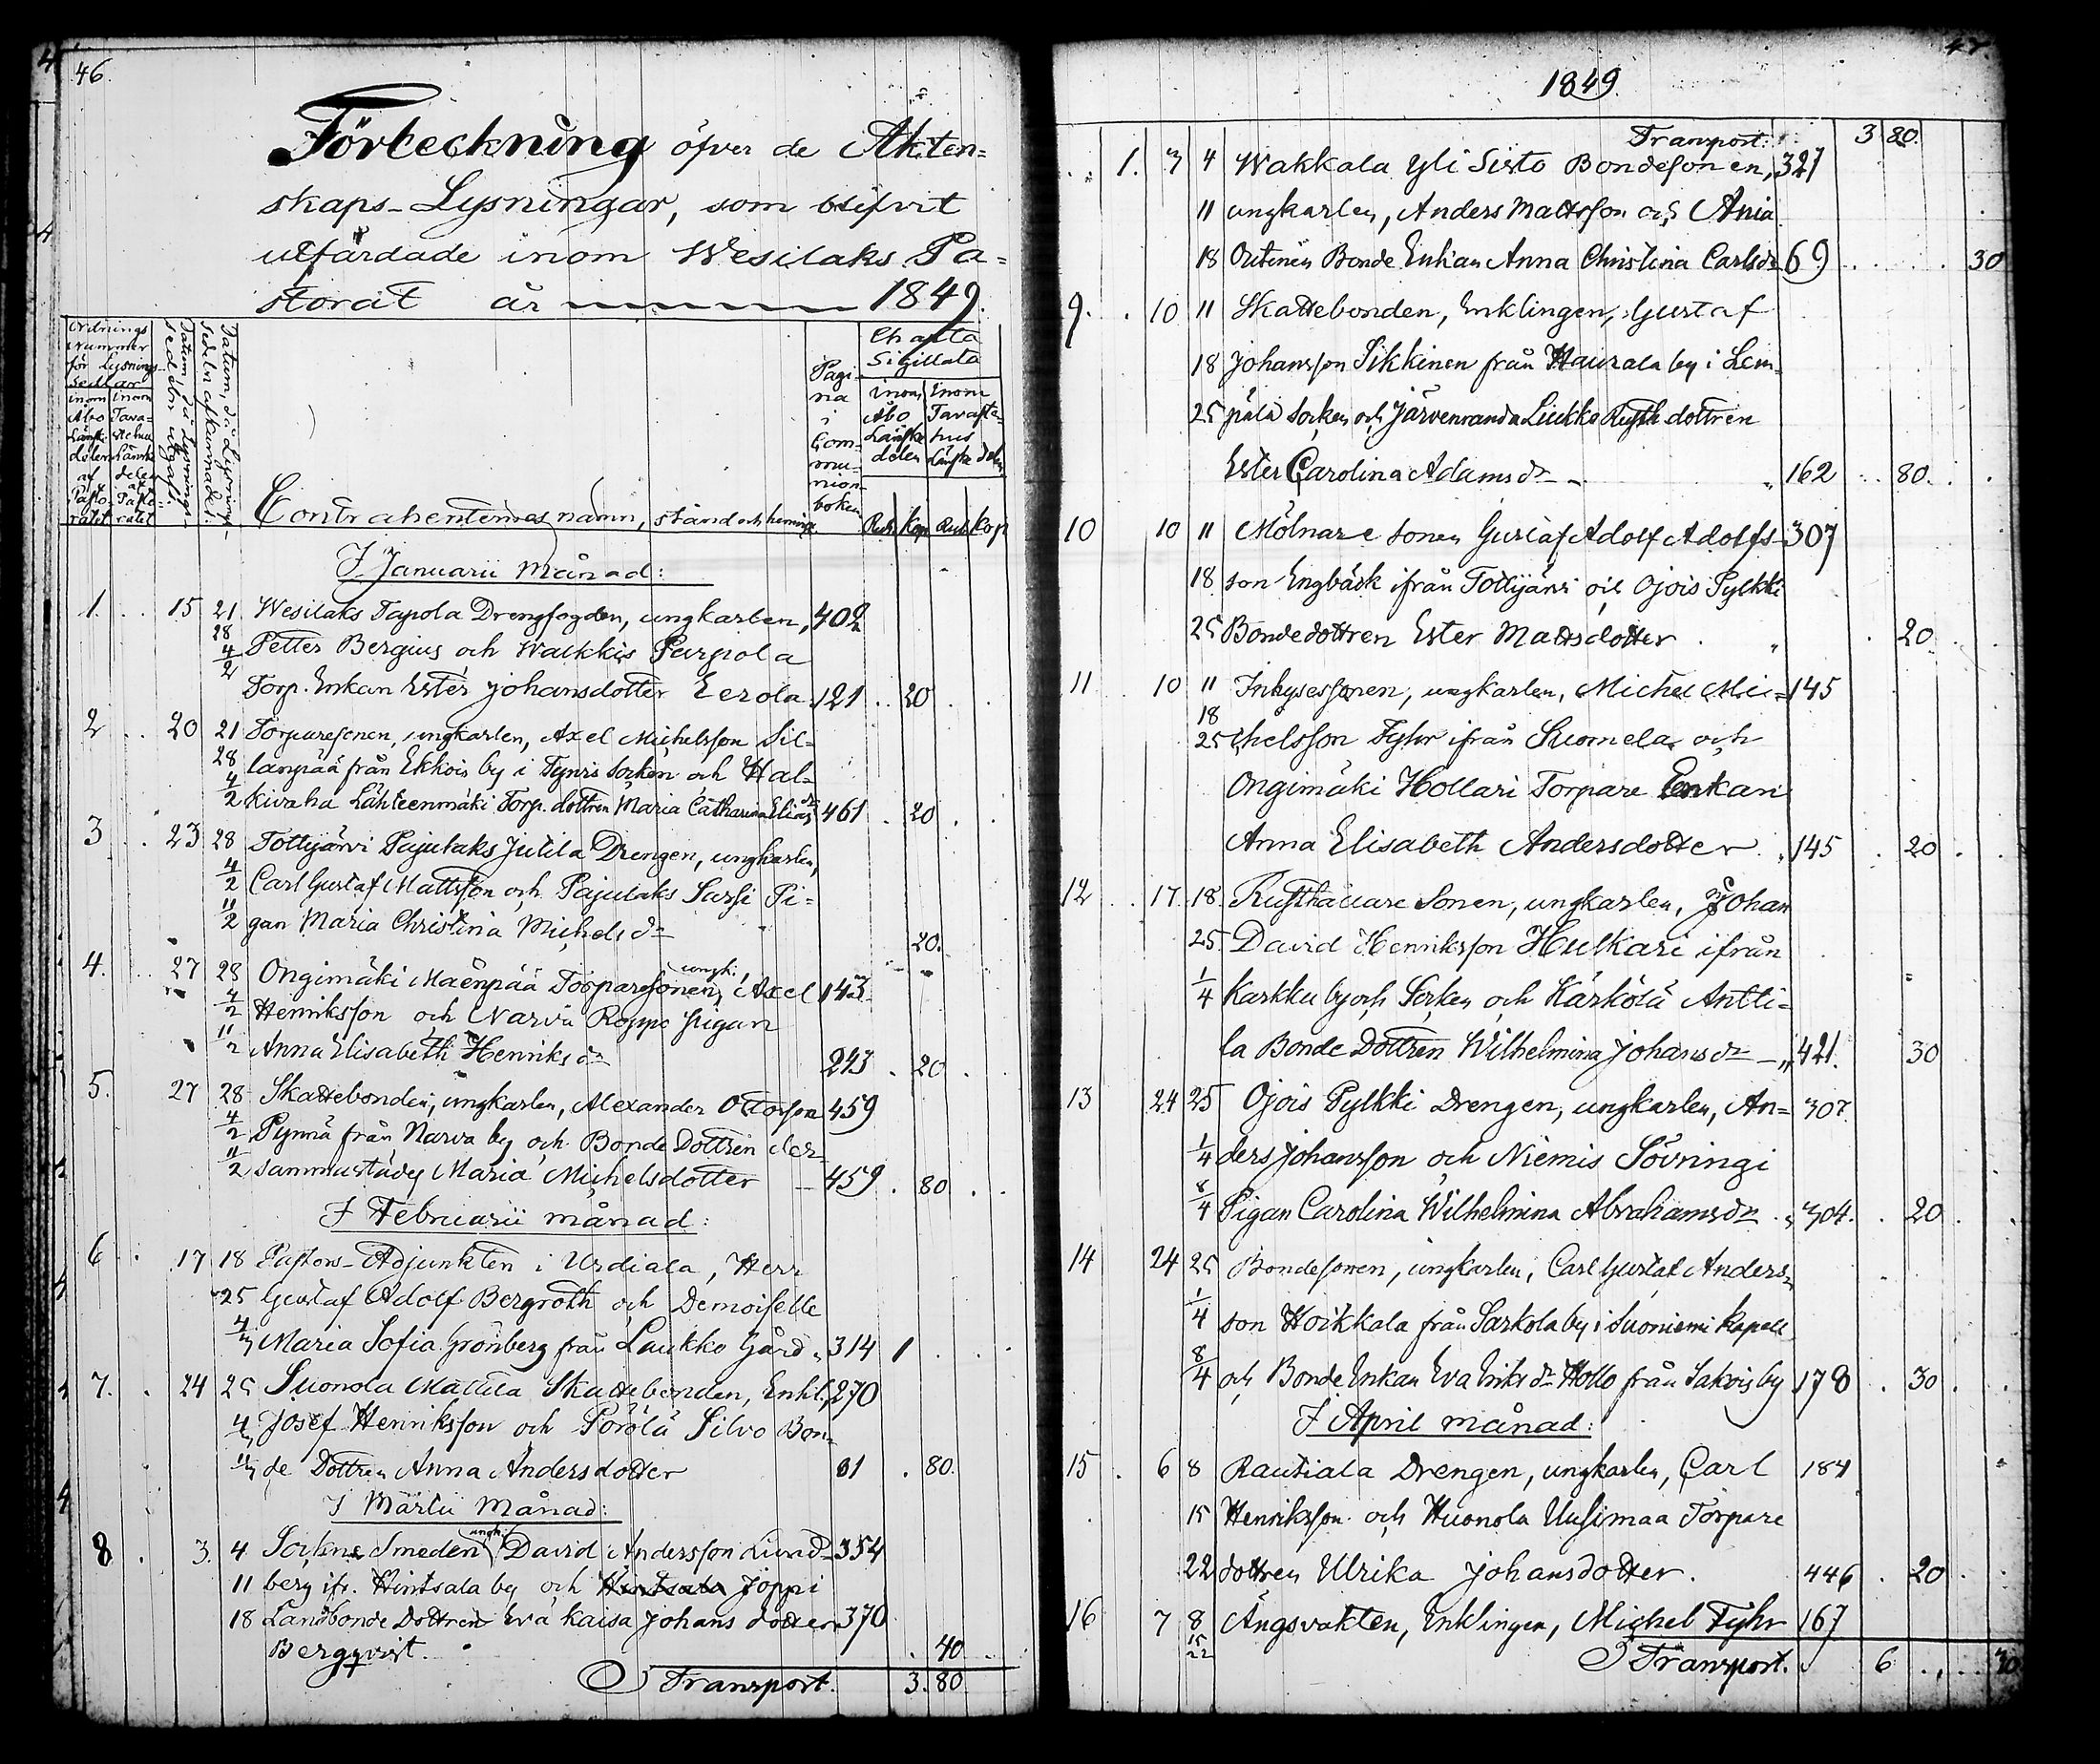 46.
Förteckning öfver de Äkten=
skaps-Lysningar, som blifvit
utfärdade inom Wesilaks Pa=
storat år 1849.
Ordnings
Nummer
för Lysnings-
Sedlar
inom Åbo Länske delen af Pasto- ratet
inom Tava- stehus Länske delen af Pasto- ratet
Datum då Lysnings- sedeln utgafs.
Datum, då Lysnings- sedeln afkunnades.
Contrahenternes namn, stånd och hemvist.
Pagi- na i Com- mu- nion- boken
Charta
Sigillata
inom Åbo Länske delen
Inom Tavaste- hus Länske delen
Rub. Kop. Rub. Kop
I Januarii Månad:
1. 15 21 Wesilaks Tapola Drengfogden, ungkarlen, 402
28 4/2 Petter Bergius och Walkkis Parpola
Torp. Enkan Ester Johansdotter Eerola 121 20
2 20 21 Torparesonen, ungkarlen, Axel Michelsson Sil-
28 lanpää från Ekkois by i Tyrvis Socken och Hal-
4/2 kivaha Lähteenmäki Torp. dottren Maria Catharina Elias dr 461 20
3 23 28 Tottijärvi Pajulaks Jutila Drengen, ungkarlen,
4/2 Carl Gustaf Mattsson och Pajulaks Sassi Pi=
11/2 gan Maria Christina Michels dr 20.
4. 27 28 Ongimäki Mäenpää Torparesonen, ungk. Axel 143
4/2 Henriksson och Narva Roppo pigan
11/2 Anna Elisabeth Henriks dr 243 20
5. 27 28 Skattebonden, ungkarlen, Alexander Ottosson 459
4/2 Pynnä från Narva by och Bonde Dottren der-
11/2 sammastädes Maria Michelsdotter 459 80
I Februarii månad:
6 17 18 Pastors-Adjunkten i Urdiala, Herr
25 Gustaf Adolf Bergroth och Demoiselle
4/3 Maria Sofia Grönberg från Laukko Gård 314 1
7. 24 25 Suonola Mattila Skattebonden, Enkl. 270
4/3 Josef Henriksson och Pörölä Silvo Bon-
11/3 de Dottren Anna Andersdotter 81 80.
I Martii Månad:
8 3. 4 Sockne Smeden, ungk. David Andersson Lind- 354
11 berg ifr. Hintsala by och Hintsala Joppi
18 Landbonde Dottren Eva Kaisa Johans dotter 370
Bergqvist. 40
Transport. 3. 80
47.
1849.
Transport: 3 80.
1. 3 4 Wakkala Yli Sisto Bondesonen, 327
11 ungkarlen, Anders Mattsson och Ania
18 Outinen Bonde Enkan Anna Christina Carls dr 69 30
9. 10 11 Skattebonden, Enklingen, Gustaf
18 Johansson Sikkinen från Haurala by i Lem-
25 päla Socken och Järvenranda Liukko Rusth. dottren
Ester Carolina Adams dr 162 80.
10 10 11 Mölnare sonen Gustaf Adolf Adolfs- 307
18 son Engbäck ifrån Tottijärvi och Ojois Pylkki
25 Bondedottren Ester Mattsdotter 20.
11 10 11 Inhysessonen, ungkarlen, Michel Mi- 145
18
25 chelsson Fyhr ifrån Suomela och
Ongimäki Hollari Torpare Enkan
Anna Elisabeth Andersdotter 145 20
12 17. 18. Rusthållare Sonen, ungkarlen, Johan
25. David Henriksson Hulkari ifrån
1/4 Karkku by och Socken och Kärkölä Antti=
la Bonde Dottren Wilhelmina Johans dr 421. 30
13 24 25 Ojois Pylkki Drengen, ungkarlen, An= 307.
1/4 ders Johansson och Niemis Sövringi
8/4 Pigan Carolina Wilhelmina Abrahams dr 304. 20
14 24 25 Bondesonen, ungkarlen, Carl Gustaf Anders-
1/4 son Hoikkala från Sarkola by i Suoniemi Kapell
8/4 och Bonde Enkan Eva Eriks dr Hollo från Sakois by 178 30
I April månad:
15 6 8 Rautiala Drengen, ungkarlen, Carl 184
15 Henriksson och Huonola Uusimaa Torpare
22 dottren Ulrika Johansdotter. 446 20
16 7 8 Ängsvakten, Enklingen, Michel Fyhr 167
15
22
Transport. 6 30